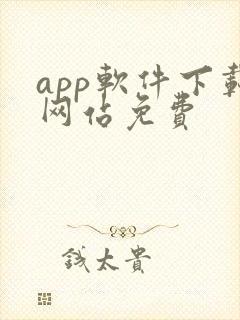 app軟件下載
网佔免費
錢太貴